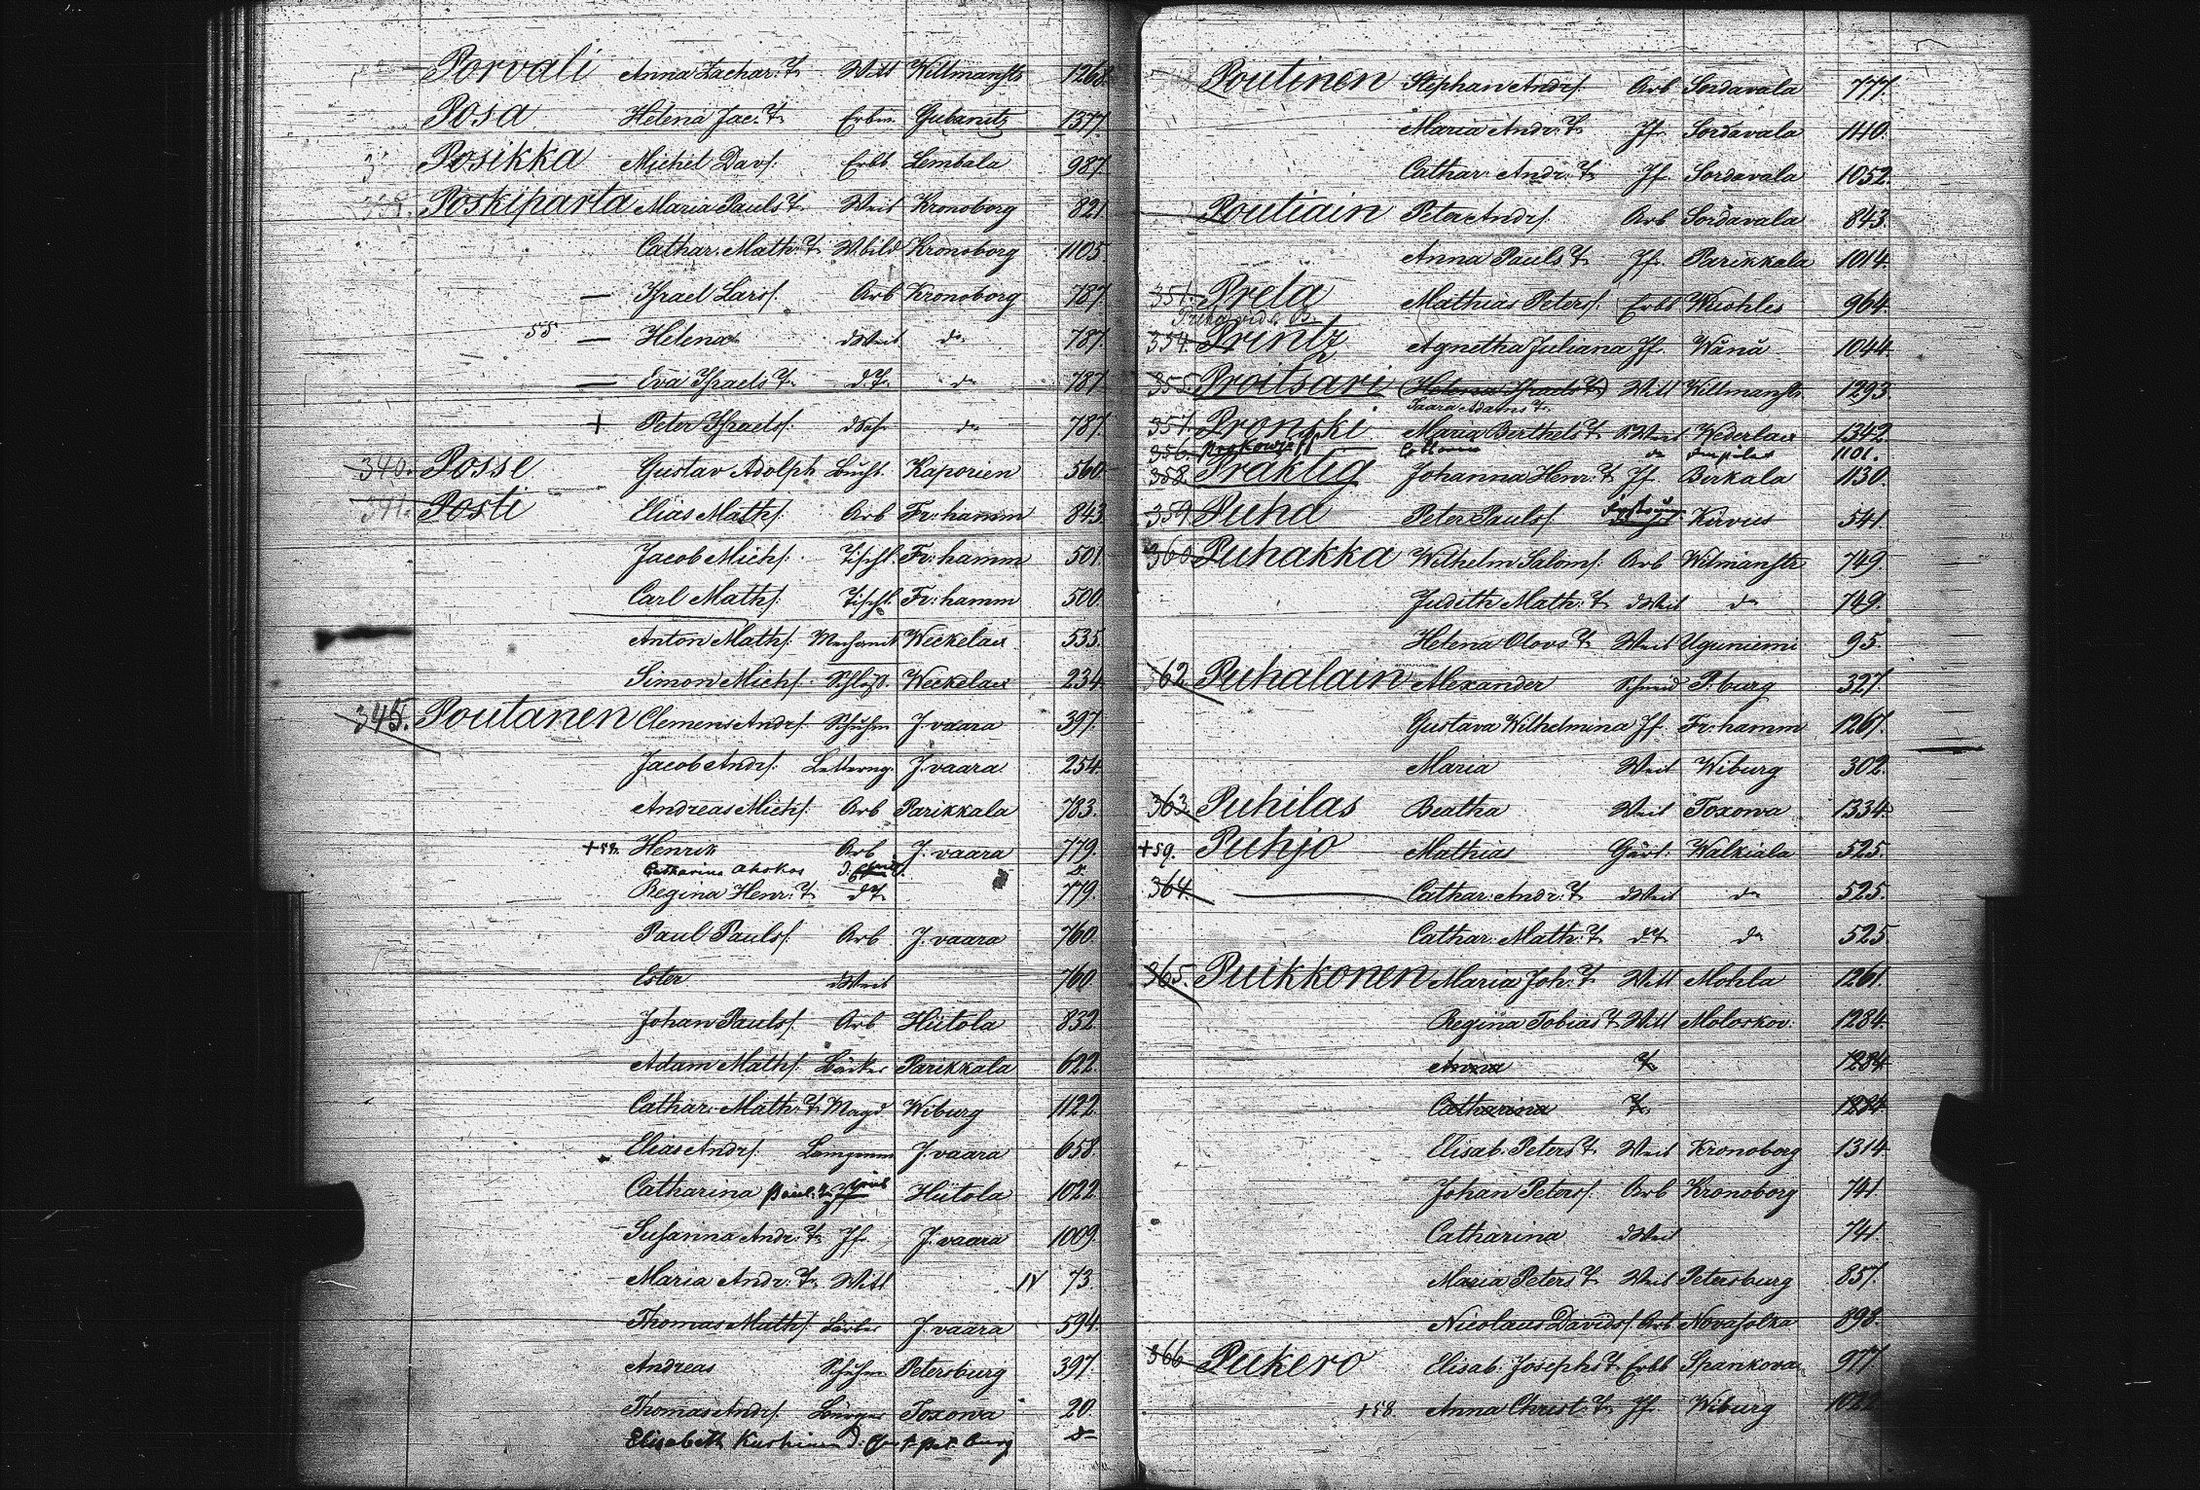 Porvali Anna Zachar: T. Witt Willmanstr 1268.
Posa Helena Jac: T. Erbm Gubanitz 1377.
Posikka Michel Davs. Erbb Lembala 987.
Poskiparta Maria Pauls T. Weib Kronoborg 821
Cathar. Math: T. Kronoborg 1105
— Israel Lars. Arb Kronoborg 787.
55 — Helena d Weib do 787.
— Eva Israels T. d. T. do 787
+ Peter Israels. do 787.
340. Posse Gustav Adolph Kaporien 560
341. Posti Elias Maths. Arb Fr: hamm 843
Jacob Michs. Tischl. Fr: hamm 501.
Carl Maths. Tischl. Fr: hamm 500.
Anton Maths. Mechanik Weckelax 535.
Simon Michs. Schloss. Weckelax 234
345. Poutanen Clemens Andrs. Schuhm J. vaara 397.
Jacob Andrs. J. vaara 254.
Andreas Michs. Arb Parikkala 783.
+ 58. Henrik Arb J. vaara 779.
Catharina Ahokas d.
Regina Henr: T. dT. 779.
Paul Pauls. Arb J. vaara 760.
Ester d Weib 760.
Johan Pauls. Arb Hiitola 832
Adam Maths. Bäcker Parikkala 622.
Cathar. Math: T. Magd Wiburg 1122.
Elias Andrs. J. vaara 658.
Catharina Paul: T. Hiitola 1022.
Susanna Andr: T. Jf. J. vaara 1009.
Maria Andr: T. Witt IV 73.
Thomas Maths. J. vaara 594.
Andreas Schuhm Petersburg 397.
Thomas Andrs. Bürger Toxowa 20.
Elisabeth d. burg
Poutinen Stephan Andrs. Arb Sordavala 777.
Maria Andr: T. Jf. Sordavala 1140.
Cathar. Andr: T. Jf. Sordavala 1052.
Poutiain Peter Andrs. Arb Sordavala 843.
Anna Pauls T. Jf. Parikkala 1014.
351. Preta Mathias Peters. Erbb Wuohles 964.
354. Printz Agnetha Juliana Jf. Wånå 1044.
355. Proitsari (Helena Israels T.) Witt Willmanstr 1293.
Saara Adams T.
357. Pronski Maria Berthels T. Weib Kederlax 1342
356. do Impilax 1101.
358. Praktig Johanna Henr: T. Jf. Birkala 1130.
359 Puha Peter Pauls. Kirvus 541.
360 Puhakka Wilhelm Saloms. Arb Wilmanstr 749.
Judith Math: T. d Weib do 749.
Helena Olovs T. Weib Uguniemi 95.
362 Puhalain Alexander Schneid P. burg 327.
Gustava Wilhelmina Jf. Fr: hamm 1267.
Maria Weib Wiburg 302.
363. Puhilas Beatha Weib Toxowa 1334.
+59. Puhjo Mathias Gärt: Walkiala 525.
364. — Cathar. Andr: T. d Weib do 525.
Cathar. Math: T. dT do 525
365. Puikkonen Maria Joh: T. Witt Mohla 1261.
Regina Tobias T. Witt Moloskov: 1284.
Anna T. 1284
Catharina T. 1284
Elisab. Peters T. Weib Kronoborg 1314
Johan Peters. Arb Kronoborg 741
Catharina d Weib 741.
Maria Peters T. Weib Petersburg 857.
Nicolaus Davids. Arb Novasolka 898.
366 Pukero Elisab. Josephs T. Erbb Spankova 977
+58. Anna Christ: T. Jf. Wiburg 1022